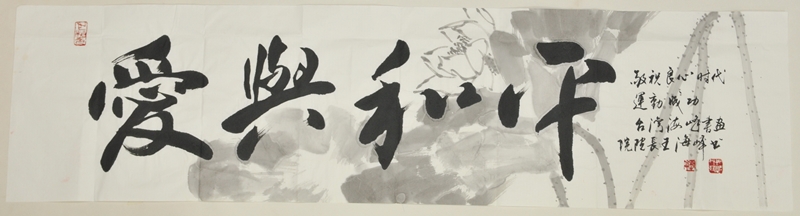 愛與和平
敬祝良心时代
運動成功
台湾海峡書画
院院長王海峰书